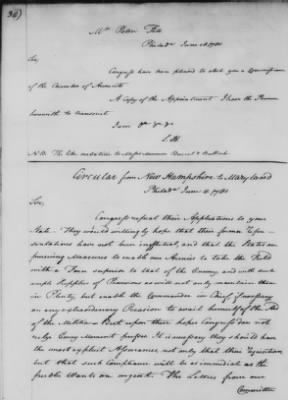 Mr. Peter Fell
Philada June 1781
Sir,
Congress have been pleased to elect you a Commissioner
of the Chamber of Accounts
A Copy of the Appointment I have the Honour
herewith to transmit
I am &c &c
S. H.
N.B. The like mutatis to Messrs
Circular from New Hampshire to Maryland
Philada June 1781
Sir,
Congress repeat their Applications to your
State. They would willingly hope that their former Repre-
sentations have not been ineffectual, and that the States are
pursuing Measures to enable our Armies to take the Field
with a Force superior to that of the Enemy, and with such
ample Supplies of Provisions as will not only maintain them
in Plenty but enable the Commander in Chief if necessary
on any extraordinary Occasion to avail himself of the Aid
of the Militia. But upon these hopes Congress dare not
rely. Every Moment presses. It is necessary they should have
the most explicit Assurances, not only that their Requisitions
but that such Compliance will be as immediate as the
public Wants are urgent. The Letters from our
Committee